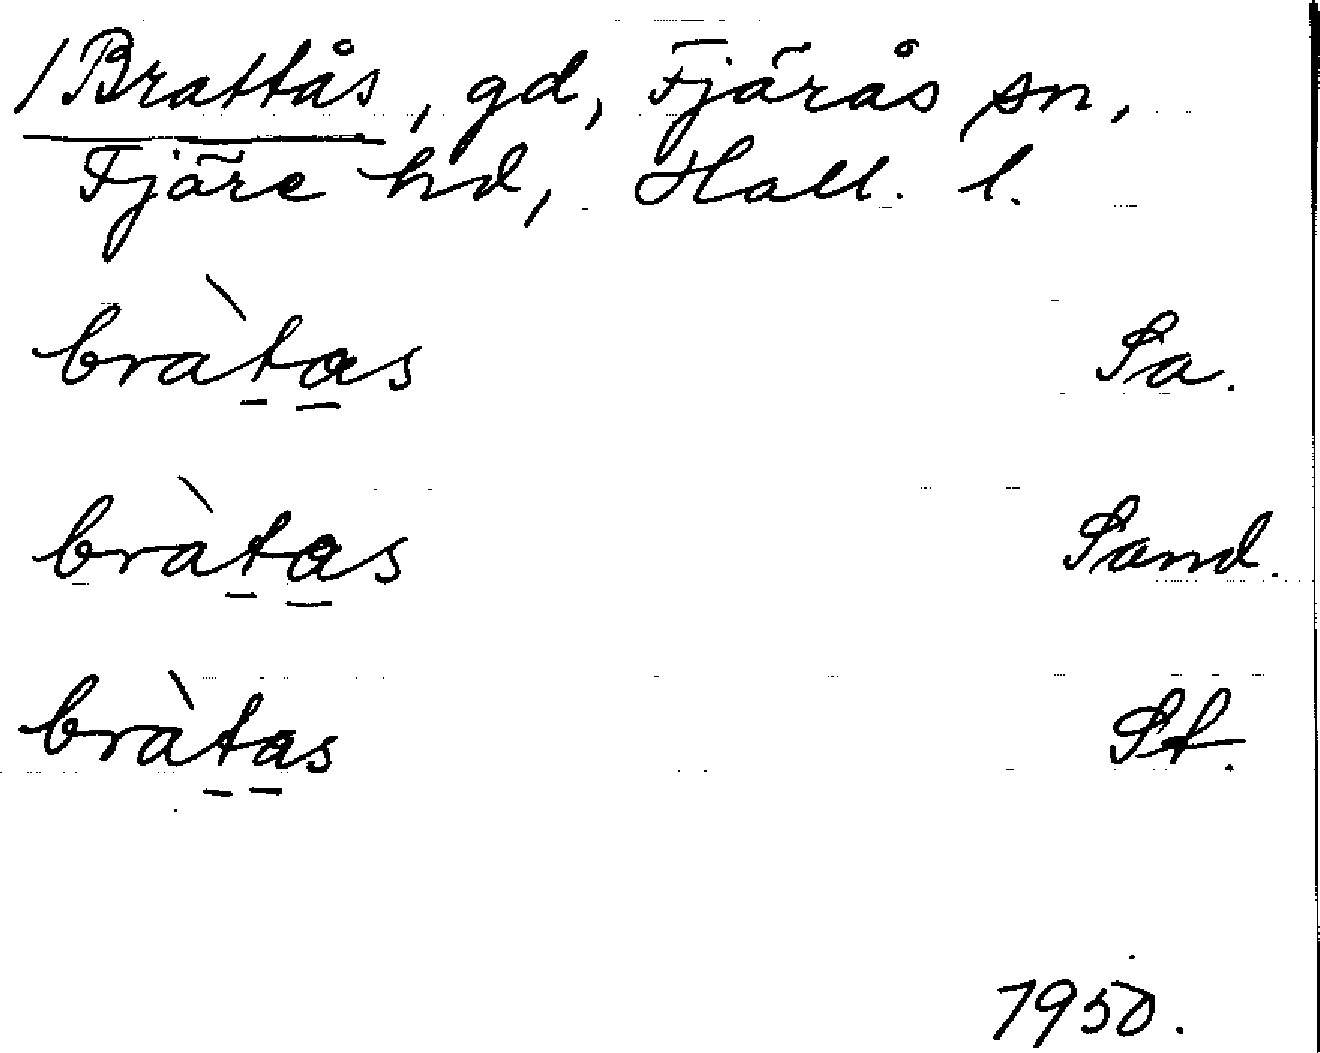 /Brattås, gd, Fjärås sn,
Fjäre hd, Hall. l.
bràtas Sa.
bràtas Sand.
bràtas St.
1950.